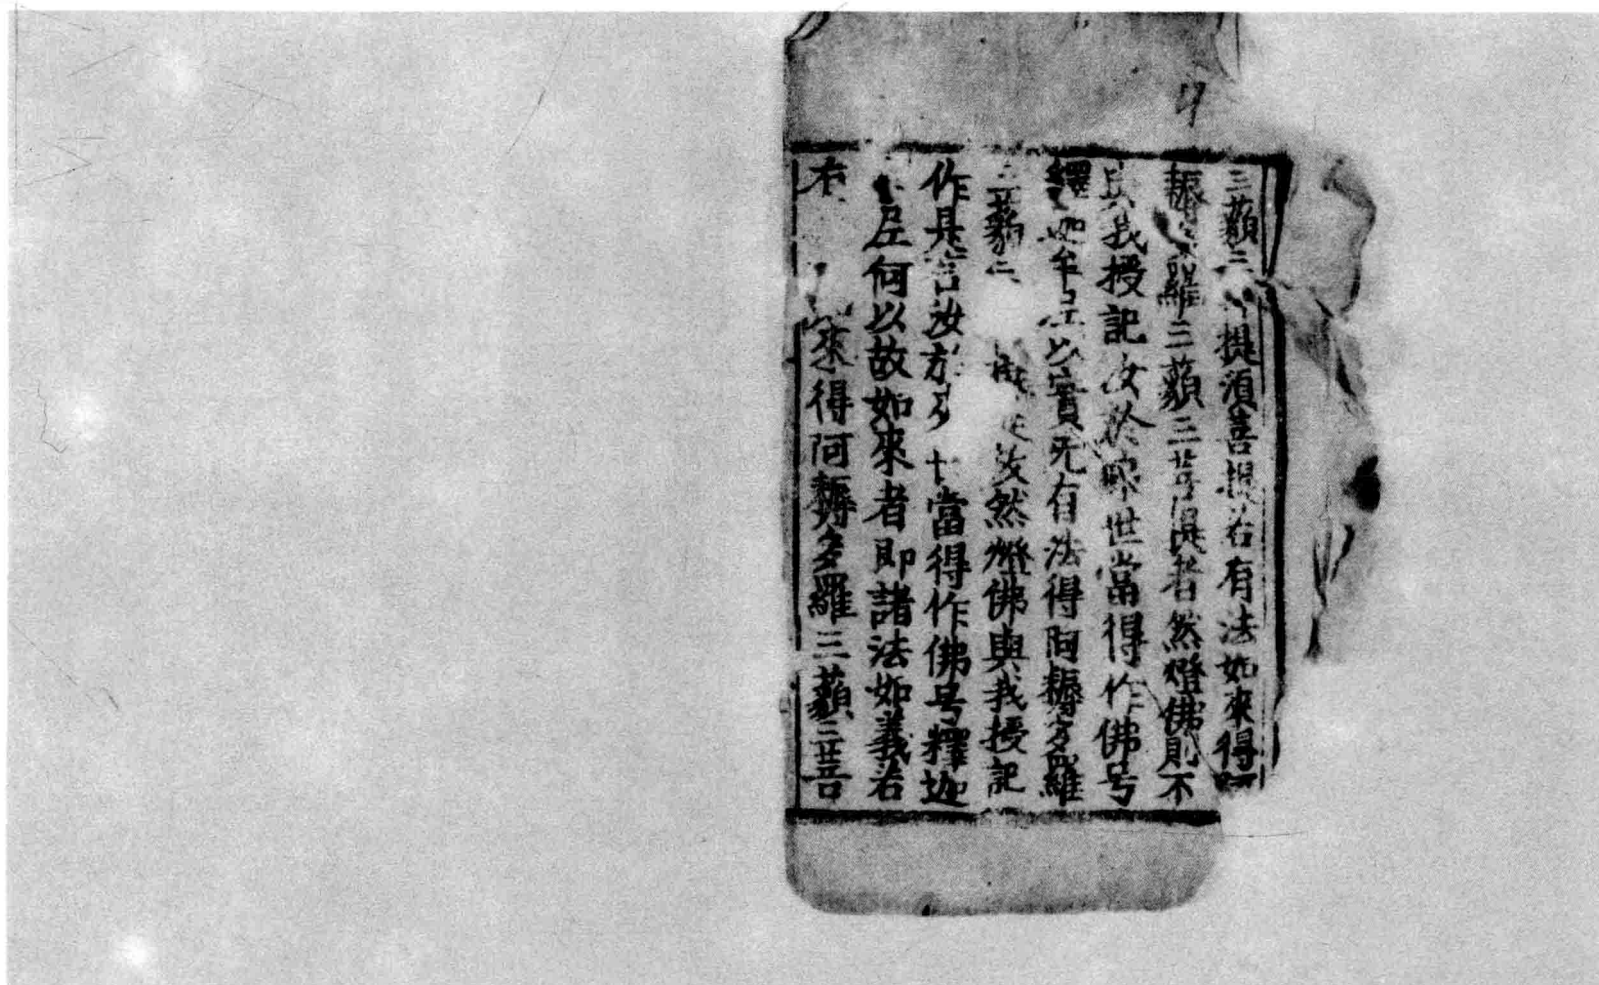 三藐三提須菩提若有法如來得阿
耨羅三藐三菩提者然燈佛則不
與我授記汝於來世當得作佛号
釋迦牟尼以實无有法得阿耨多羅
三藐三是故然燈佛與我授記
作是言汝於當得作佛号釋迦
尼何以故如來者即諸法如義若
有來得阿耨多羅三藐三菩